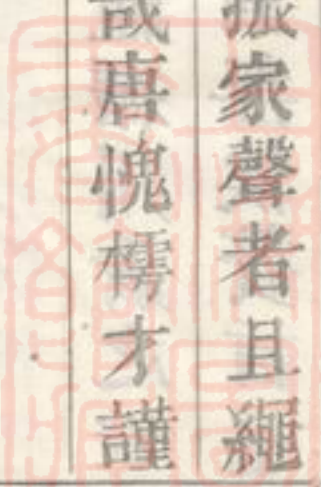 振家聲者且繩
哉唐愧樗才謹